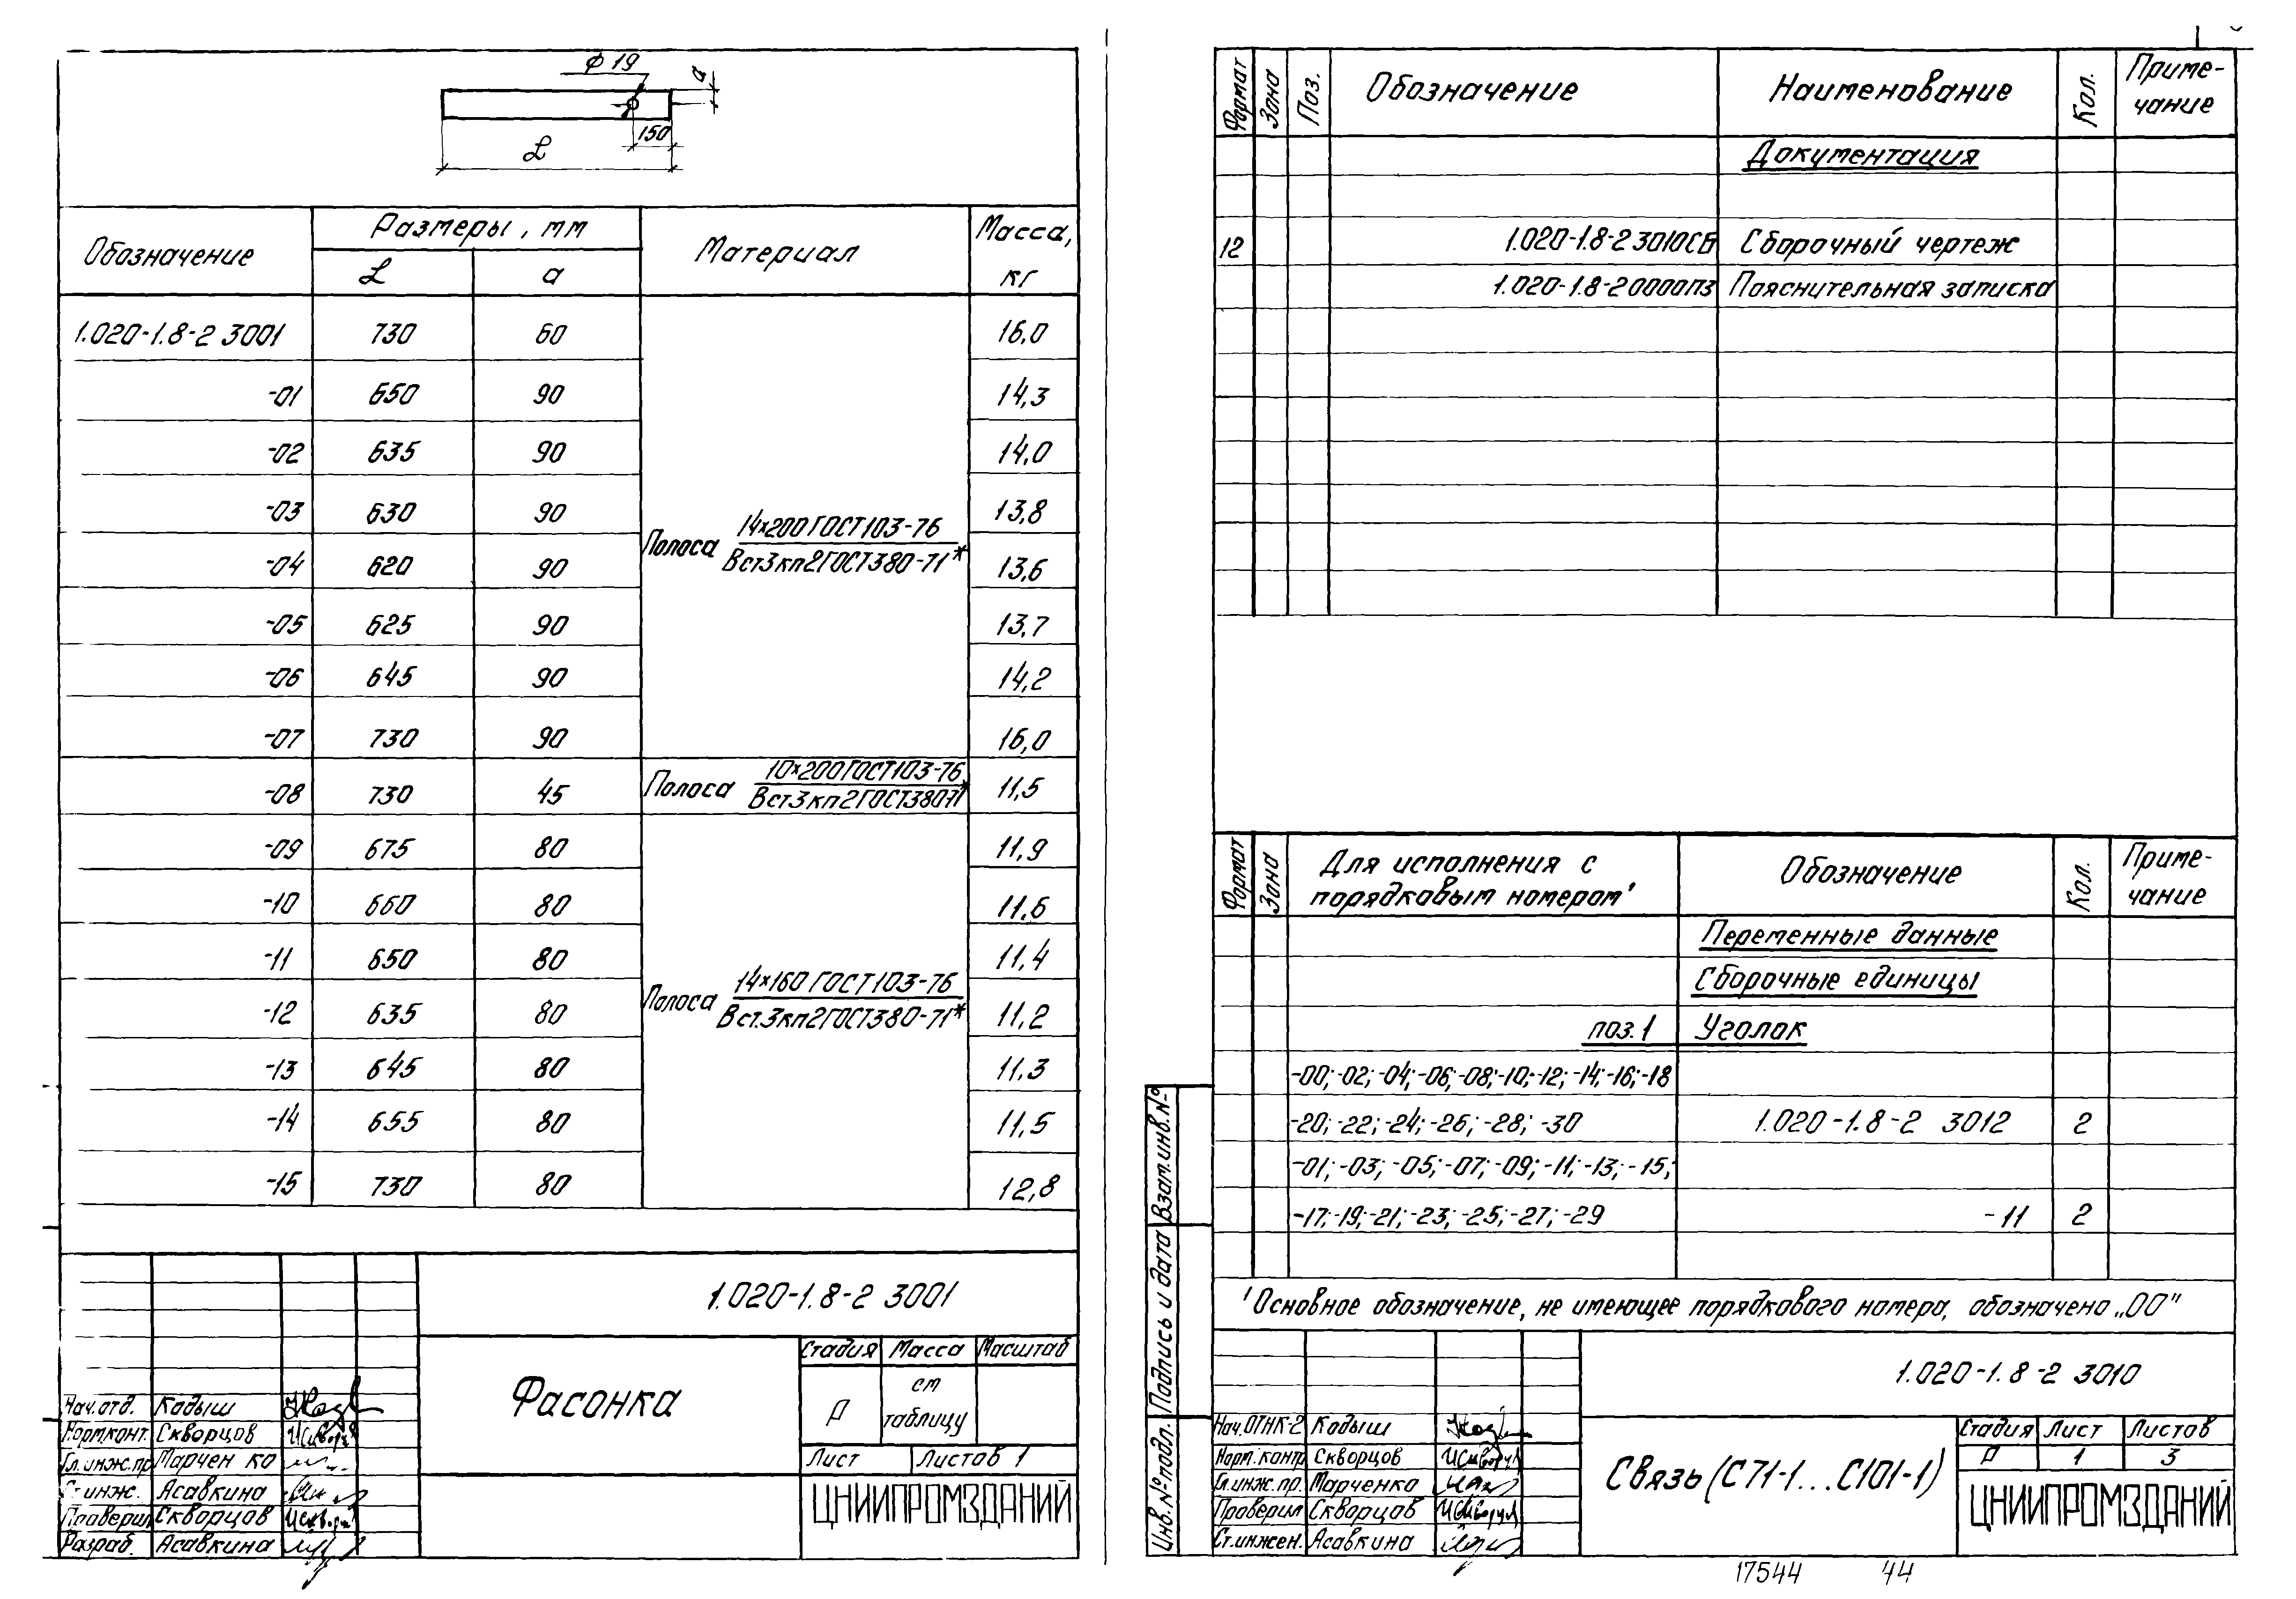 ϕ 19
a
150
L
Обозначение
Размеры, мм
Материал
Масса, кг
L
a
1.020-1.8-2 3001 730 60 16,0
-01 650 90 14,3
-02 635 90 14,0
-03 630 90 13,8
Полоса 14×200 ГОСТ 103-76
Вст3кп2 ГОСТ 380-71*
-04 620 90 13,6
-05 625 90 13,7
-06 645 90 14,2
-07 730 90 16,0
-08 730 45 11,5
Полоса 10×200 ГОСТ 103-76
Вст3кп2 ГОСТ 380 71*
-09 675 80 11,9
-10 660 80 11,6
-11 650 80 11,4
Полоса 14×160 ГОСТ 103-76
Вст.3кп2 ГОСТ 380-71*
-12 635 80 11,2
-13 645 80 11,3
-14 655 80 11,5
-15 730 80 12,8
1.020-1.8-2 3001
Фасонка
Стадия Масса Масштаб
Р см таблицу
Лист Листов 1
ЦНИИПРОМЗДАНИЙ
Нач.отд. Кодыш
Норм.конт. Скворцов
Гл.инж.пр Марчен ко
Ст.инж. Асавкина
Проверил Скворцов
Разраб. Асавкина
Формат Зона Поз. Обозначение Наименование Кол. Приме-
чание
Документация
12 1.020-1.8-2 3010СБ Сборочный чертеж
1.020-1.8-2 0000ПЗ Пояснительная записка
Формат Зона Для исполнения с Обозначение Кол. Приме-
порядковым номером¹ чание
Переменные данные
Сборочные единицы
поз.1 Уголок
-00; -02; -04; -06; -08; -10; -12; -14; -16; -18
-20; -22; -24; -26; -28; -30 1.020-1.8-2 3012 2
-01; -03; -05; -07; -09; -11; -13; -15;
-17; -19; -21; -23; -25; -27; -29 -11 2
¹Основное обозначение, не имеющее порядкового номера, обозначено „00"
1.020-1.8-2 3010
Связь (С71-1...С101-1)
Стадия Лист Листов
Р 1 3
ЦНИИПРОМЗДАНИЙ
Нач.ОТНК-2 Кодыш
Норм.контр Скворцов
Гл.инж.пр. Марченко
Проверил Скворцов
Ст.инжен. Асавкина
Взам.инв.№
Подпись и дата
Инв.№ подл.
17544 44